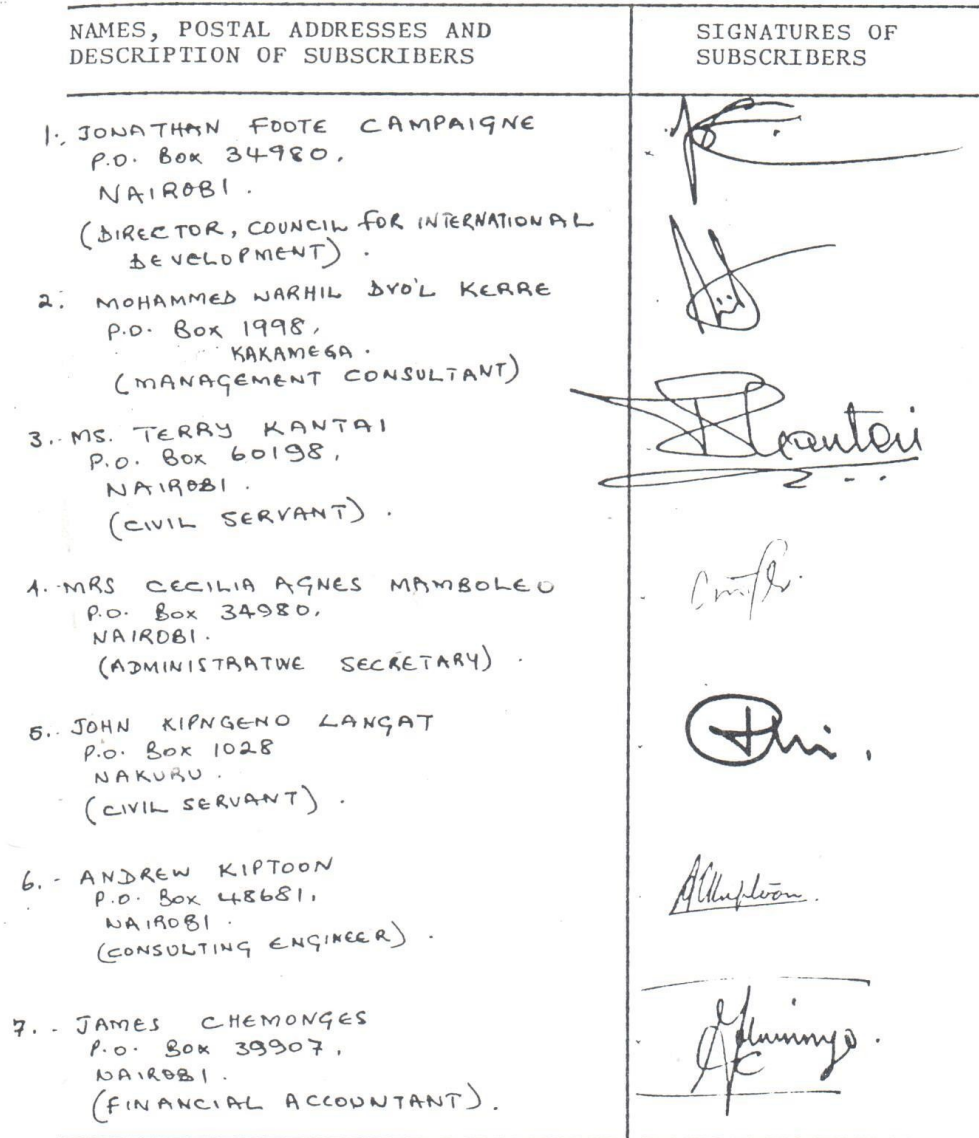 NAMES, POSTAL ADDRESSES AND
DESCRIPTION OF SUBSCRIBERS
SIGNATURES OF
SUBSCRIBERS
1. JONATHAN FOOTE CAMPAIGNE
P.O. Box 34980,
NAIROBI.
(DIRECTOR, COUNCIL FOR INTERNATIONAL
DEVELOPMENT).
2. MOHAMMED WARHIL DYO'L KERRE
P.O. Box 1998,
KAKAMEGA.
(MANAGEMENT CONSULTANT)
3. MS. TERRY KANTAI
P.O. Box 60198,
NAIROBI.
(CIVIL SERVANT).
Kantai
4. MRS CECILIA AGNES MAMBOLEO
P.O. Box 34980,
NAIROBI.
(ADMINISTRATIVE SECRETARY).
5. JOHN KIPNGENO LANGAT
P.O. Box 1028
NAKURU.
(CIVIL SERVANT).
6. - ANDREW KIPTOON
P.O. Box 48681,
NAIROBI.
(CONSULTING ENGINEER).
7. - JAMES CHEMONGES
P.O. Box 39907,
NAIROBI.
(FINANCIAL ACCOUNTANT).